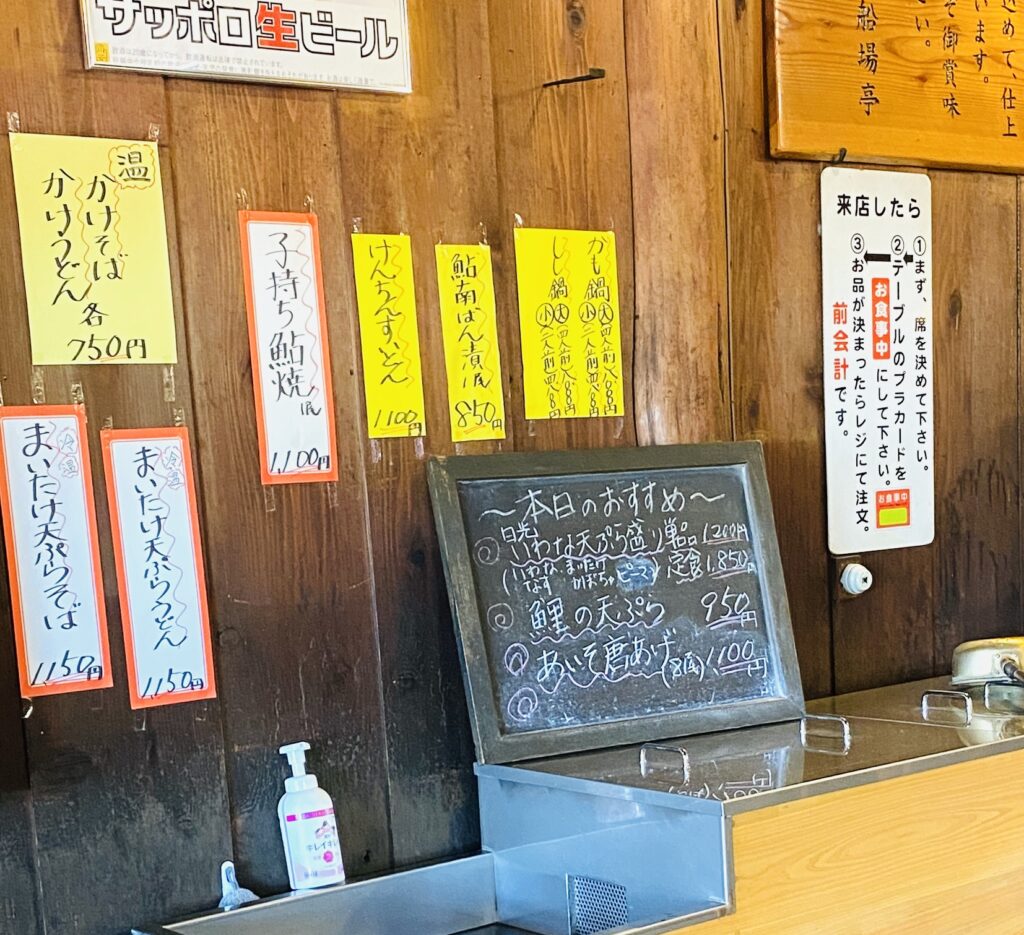 サッポロ生ビール
込めて、仕上
います。
そ御賞味
さい。
船場亭
来店したら
①まず、席を決めて下さい。
②テーブルのプラカードを
お食事中にして下さい。
お食事中
③お品が決まったらレジにて注文。
前会計です。
温
かけそば
かけうどん
各
750円
子持ち鮎焼
1,100円
けんちんすいとん
1100円
鮎南ばん漬
850円
かも鍋
大
小
しし鍋
大
小
冷
温
まいたけ天ぷらそば
1150円
冷
温
まいたけ天ぷらうどん
1,150円
〜本日のおすすめ〜
日光
いわな天ぷら盛り単品1200円
(いわな まいたけ
なす かぼちゃ ピーマン)
定食1,850円
鯉の天ぷら 950円
あいそ唐あげ 1100円
キレイキレイ